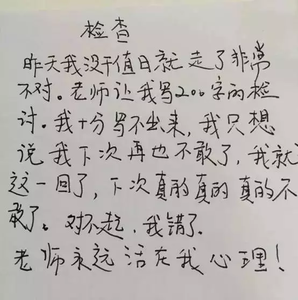 检查
昨天我没干值日就走了非常
不对。老师让我写200字的检
讨。我十分写不出来，我只想
说我下次再也不敢了，我就
这一回了，下次真的真的真的不
敢了。对不起，我错了。
老师永远活在我心理！